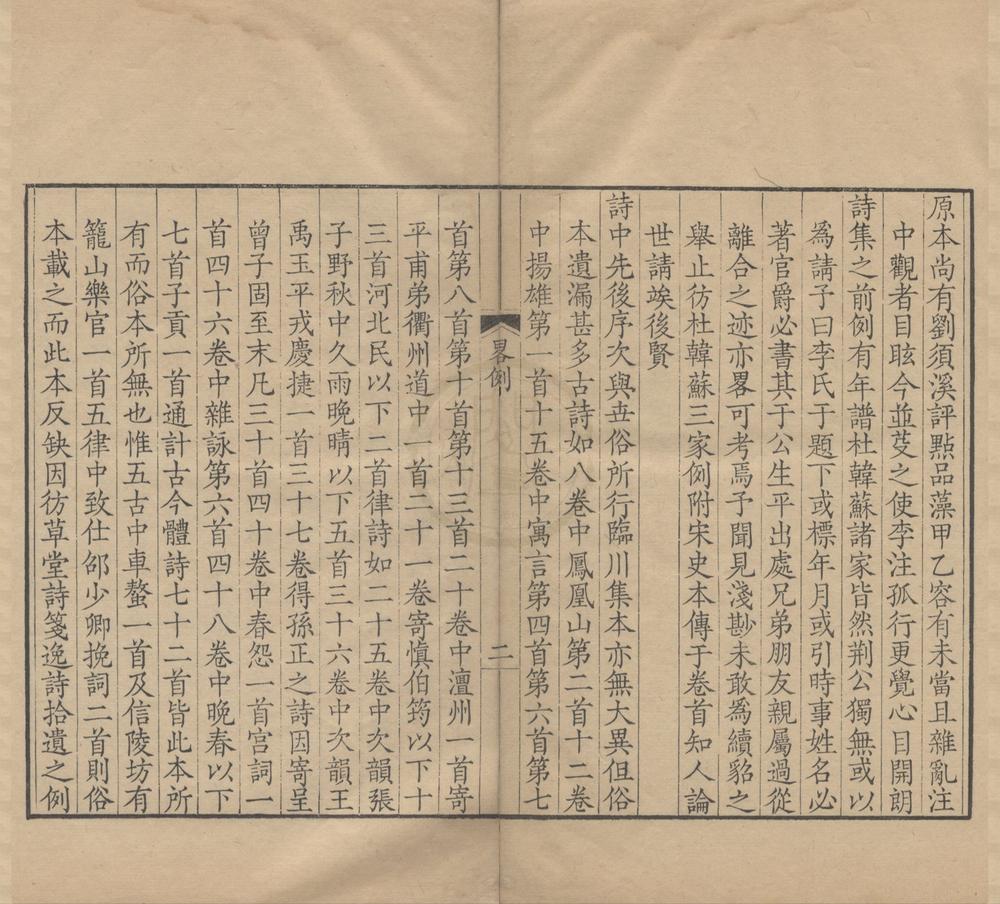 原本尚有劉須溪評點品藻甲乙容有未當且雜亂注
中觀者目眩今並芟之使李注孤行更覺心目開朗
詩集之前例有年譜杜韓蘇諸家皆然荆公獨無或以
為請予曰李氏于題下或標年月或引時事姓名必
著官爵必書其于公生平出處兄弟朋友親屬過從
離合之迹亦畧可考焉予聞見淺尠未敢為續貂之
舉止彷杜韓蘇三家例附宋史本傳于卷首知人論
世請竢後賢
詩中先後序次與世俗所行臨川集本亦無大異但俗
本遺漏甚多古詩如八卷中鳳凰山第二首十二卷
中揚雄第一首十五卷中寓言第四首第六首第七
畧例
二
首第八首第十首第十三首二十卷中澶州一首寄
平甫弟衢州道中一首二十一卷寄慎伯筠以下十
三首河北民以下二首律詩如二十五卷中次韻張
子野秋中久雨晚晴以下五首三十六卷中次韻王
禹玉平戎慶捷一首三十七卷得孫正之詩因寄呈
曾子固至末凡三十首四十卷中春怨一首宮詞一
首四十六卷中雜詠第六首四十八卷中晚春以下
七首子貢一首通計古今體詩七十二首皆此本所
有而俗本所無也惟五古中車螯一首及信陵坊有
籠山樂官一首五律中致仕邵少卿挽詞二首則俗
本載之而此本反缺因彷草堂詩箋逸詩拾遺之例